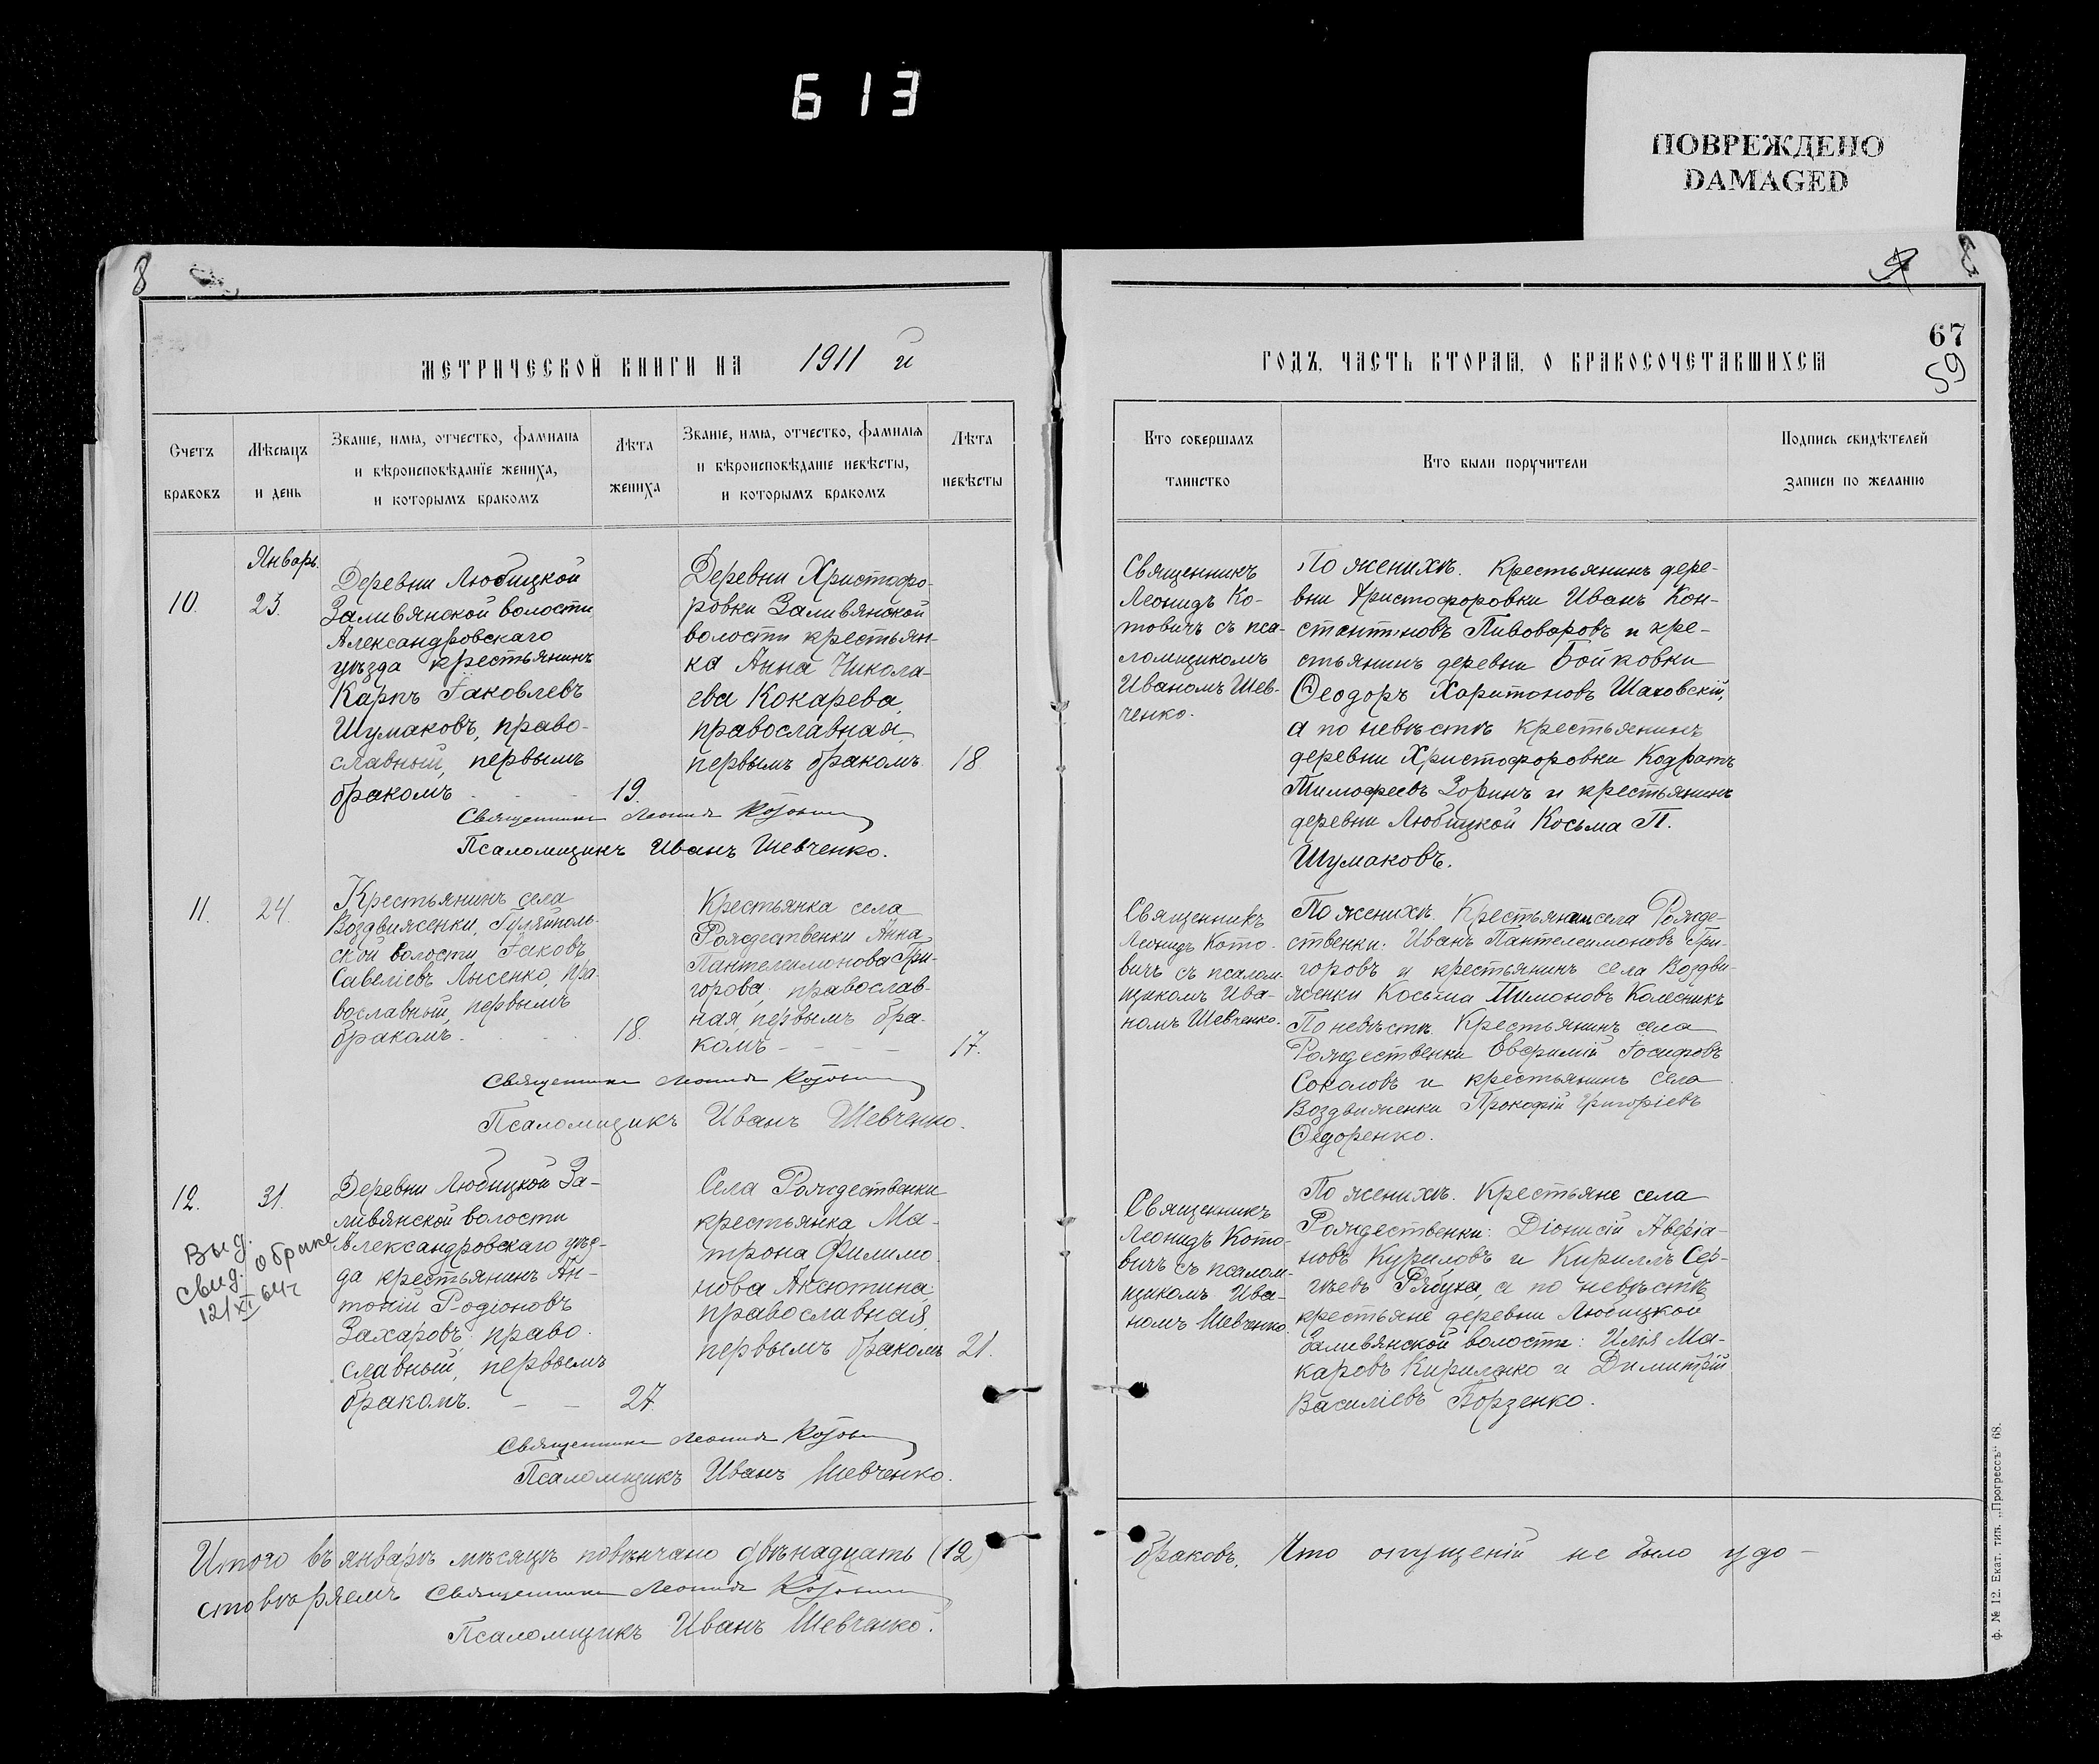 613
ПОВРЕЖДЕНО
DAMAGED
8
67
59
МЕТРИЧЕСКОЙ КНИГИ НА 1911 й
ГОДЪ, ЧАСТЬ ВТОРАЯ, О БРАКОСОЧЕТАВШИХСЯ
Счетъ
браковъ
Мѣсяцъ
и день
Званіе, имя, отчество, фамилія
и вѣроисповѣданіе жениха,
и которымъ бракомъ
Лѣта
жениха
Званіе, имя, отчество, фамилія
и вѣроисповѣданіе невѣсты,
и которымъ бракомъ
Лѣта
невѣсты
Кто совершалъ
таинство
Кто были поручители
Подпись свидѣтелей
записи по желанію
10.
Январь.
23.
Деревни Любицкой
Заливянской волости,
Александровскаго
уѣзда крестьянинъ
Карпъ Іаковлевъ
Шумаковъ, право-
славный, первымъ
бракомъ
19.
Деревни Христофо-
ровки Заливянской
волости крестьян-
ка Анна Никола-
ева Кокарева,
православная,
первымъ бракомъ
18
Священникъ Леонидъ Котович
Псаломщикъ Иванъ Шевченко.
Священникъ
Леонидъ Ко-
товичъ съ пса-
ломщикомъ
Иваномъ Шев-
ченко.
По женихѣ. Крестьянинъ дере-
вни Христофоровки Иванъ Кон-
стантиновъ Пивоваровъ и кре-
стьянинъ деревни Бойковки
Ѳеодоръ Харитоновъ Шаховскій,
а по невѣстѣ крестьянинъ
деревни Христофоровки Кодратъ
Тимофеевъ Зоринъ и крестьянинъ
деревни Любицкой Косьма П.
Шумаковъ.
11.
24.
Крестьянинъ села
Воздвиженки, Гуляйполь-
ской волости Іаковъ
Савеліевъ Лысенко, пра-
вославный, первымъ
бракомъ.
18.
Крестьянка села
Рождественки Анна
Пантелеимонова Гри-
горова, православ-
ная, первымъ бра-
комъ
17.
Священникъ Леонидъ Котович
Псаломщикъ Иванъ Шевченко.
Священникъ
Леонидъ Кото-
вичъ съ псалом-
щикомъ Ива-
номъ Шевченко.
По женихѣ. Крестьянин села Рожде-
ственки: Иванъ Пантелеимоновъ Гри-
горовъ и крестьянинъ села Воздви-
женки Косьма Тимоновъ Колесникъ
По невѣстѣ. Крестьянинъ села
Рождественки Евфимій Іосифовъ
Соколовъ и крестьянинъ села
Воздвиженки Прокофій Григоріевъ
Ѳедоренко.
12.
31.
Выд.
свид. о браке
12/XI 64г
Деревни Любицкой За-
ливянской волости
Александровскаго уѣз-
да крестьянинъ Ан-
тоній Родіоновъ
Захаровъ, право-
славный, первымъ
бракомъ.
27
Села Рождественки
крестьянка Ма-
трона Филимо-
нова Аксютина
православная
первымъ бракомъ
21.
Священникъ Леонидъ Котович
Псаломщикъ Иванъ Шевченко.
Священникъ
Леонидъ Кото-
вичъ съ псалом-
щикомъ Ива-
номъ Шевченко.
По женихѣ. Крестьяне села
Рождественки: Діонисій Аверіа-
новъ Куриловъ и Кириллъ Сер-
гѣевъ Рябуха, а по невѣстѣ
крестьяне деревни Любицкой
Заливянской волости: Илія Ма-
каровъ Кириленко и Димитрій
Василіевъ Борзенко.
Итого въ январѣ мѣсяцѣ повѣнчано двѣнадцать (12)
браковъ. Что опущеній не было удо-
стовѣряемъ Священникъ Леонидъ Котович
Псаломщикъ Иванъ Шевченко.
ф. № 12. Екат. тип. „Прогрессъ“ 68.